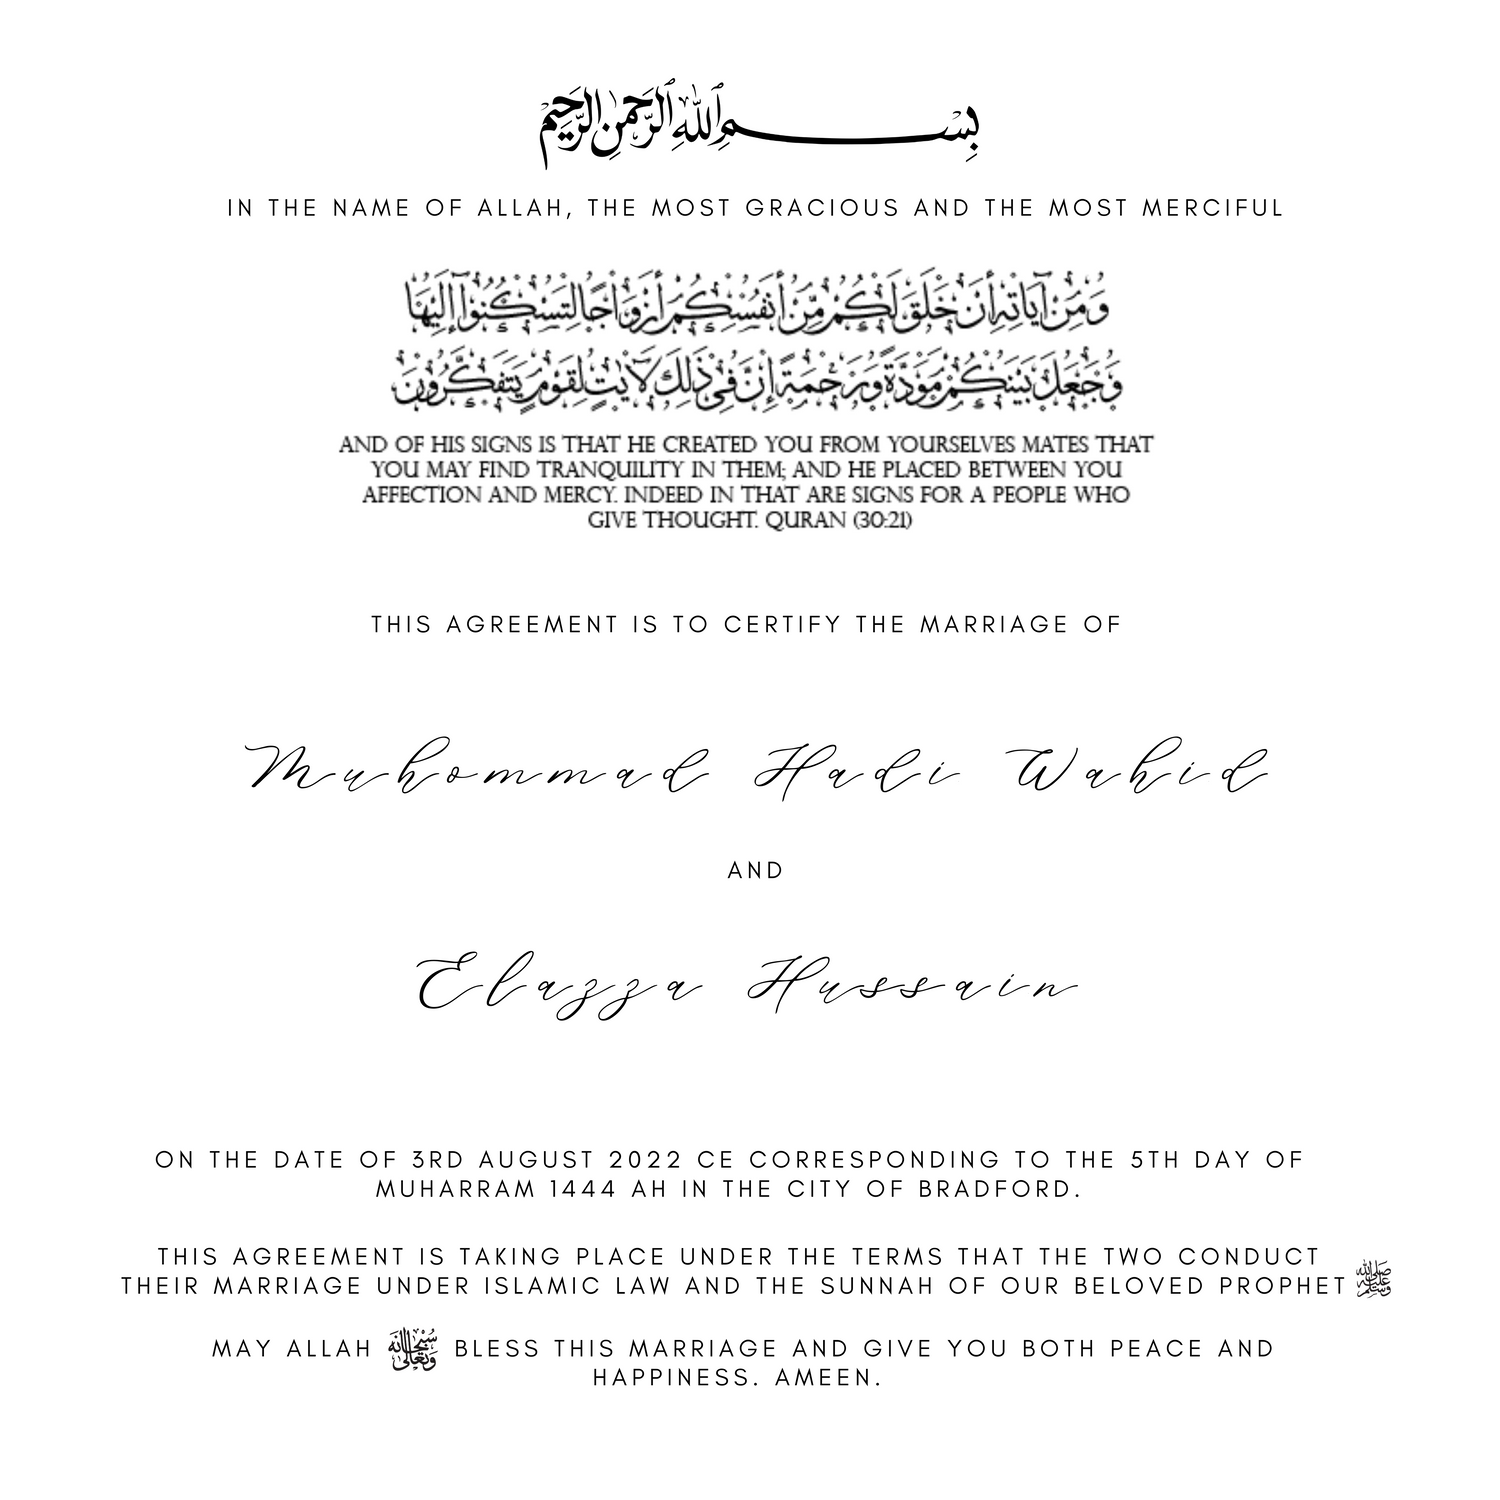 بِسْمِ ٱللَّهِ ٱلرَّحْمَٰنِ ٱلرَّحِيمِ
IN THE NAME OF ALLAH, THE MOST GRACIOUS AND THE MOST MERCIFUL
وَمِنْ آيَاتِهِ أَنْ خَلَقَ لَكُم مِّنْ أَنفُسِكُمْ أَزْوَاجًا لِّتَسْكُنُوا إِلَيْهَا
وَجَعَلَ بَيْنَكُم مَّوَدَّةً وَرَحْمَةً إِنَّ فِي ذَٰلِكَ لَآيَٰتٍ لِّقَوْمٍ يَتَفَكَّرُونَ
AND OF HIS SIGNS IS THAT HE CREATED YOU FROM YOURSELVES MATES THAT
YOU MAY FIND TRANQUILITY IN THEM; AND HE PLACED BETWEEN YOU
AFFECTION AND MERCY. INDEED IN THAT ARE SIGNS FOR A PEOPLE WHO
GIVE THOUGHT. QURAN (30:21)
THIS AGREEMENT IS TO CERTIFY THE MARRIAGE OF
Muhommad Hadi Wahid
AND
Elazza Hussain
ON THE DATE OF 3RD AUGUST 2022 CE CORRESPONDING TO THE 5TH DAY OF
MUHARRAM 1444 AH IN THE CITY OF BRADFORD.
THIS AGREEMENT IS TAKING PLACE UNDER THE TERMS THAT THE TWO CONDUCT
THEIR MARRIAGE UNDER ISLAMIC LAW AND THE SUNNAH OF OUR BELOVED PROPHET ﷺ
MAY ALLAH سُبْحَانَهُ وَتَعَالَىٰ BLESS THIS MARRIAGE AND GIVE YOU BOTH PEACE AND
HAPPINESS. AMEEN.